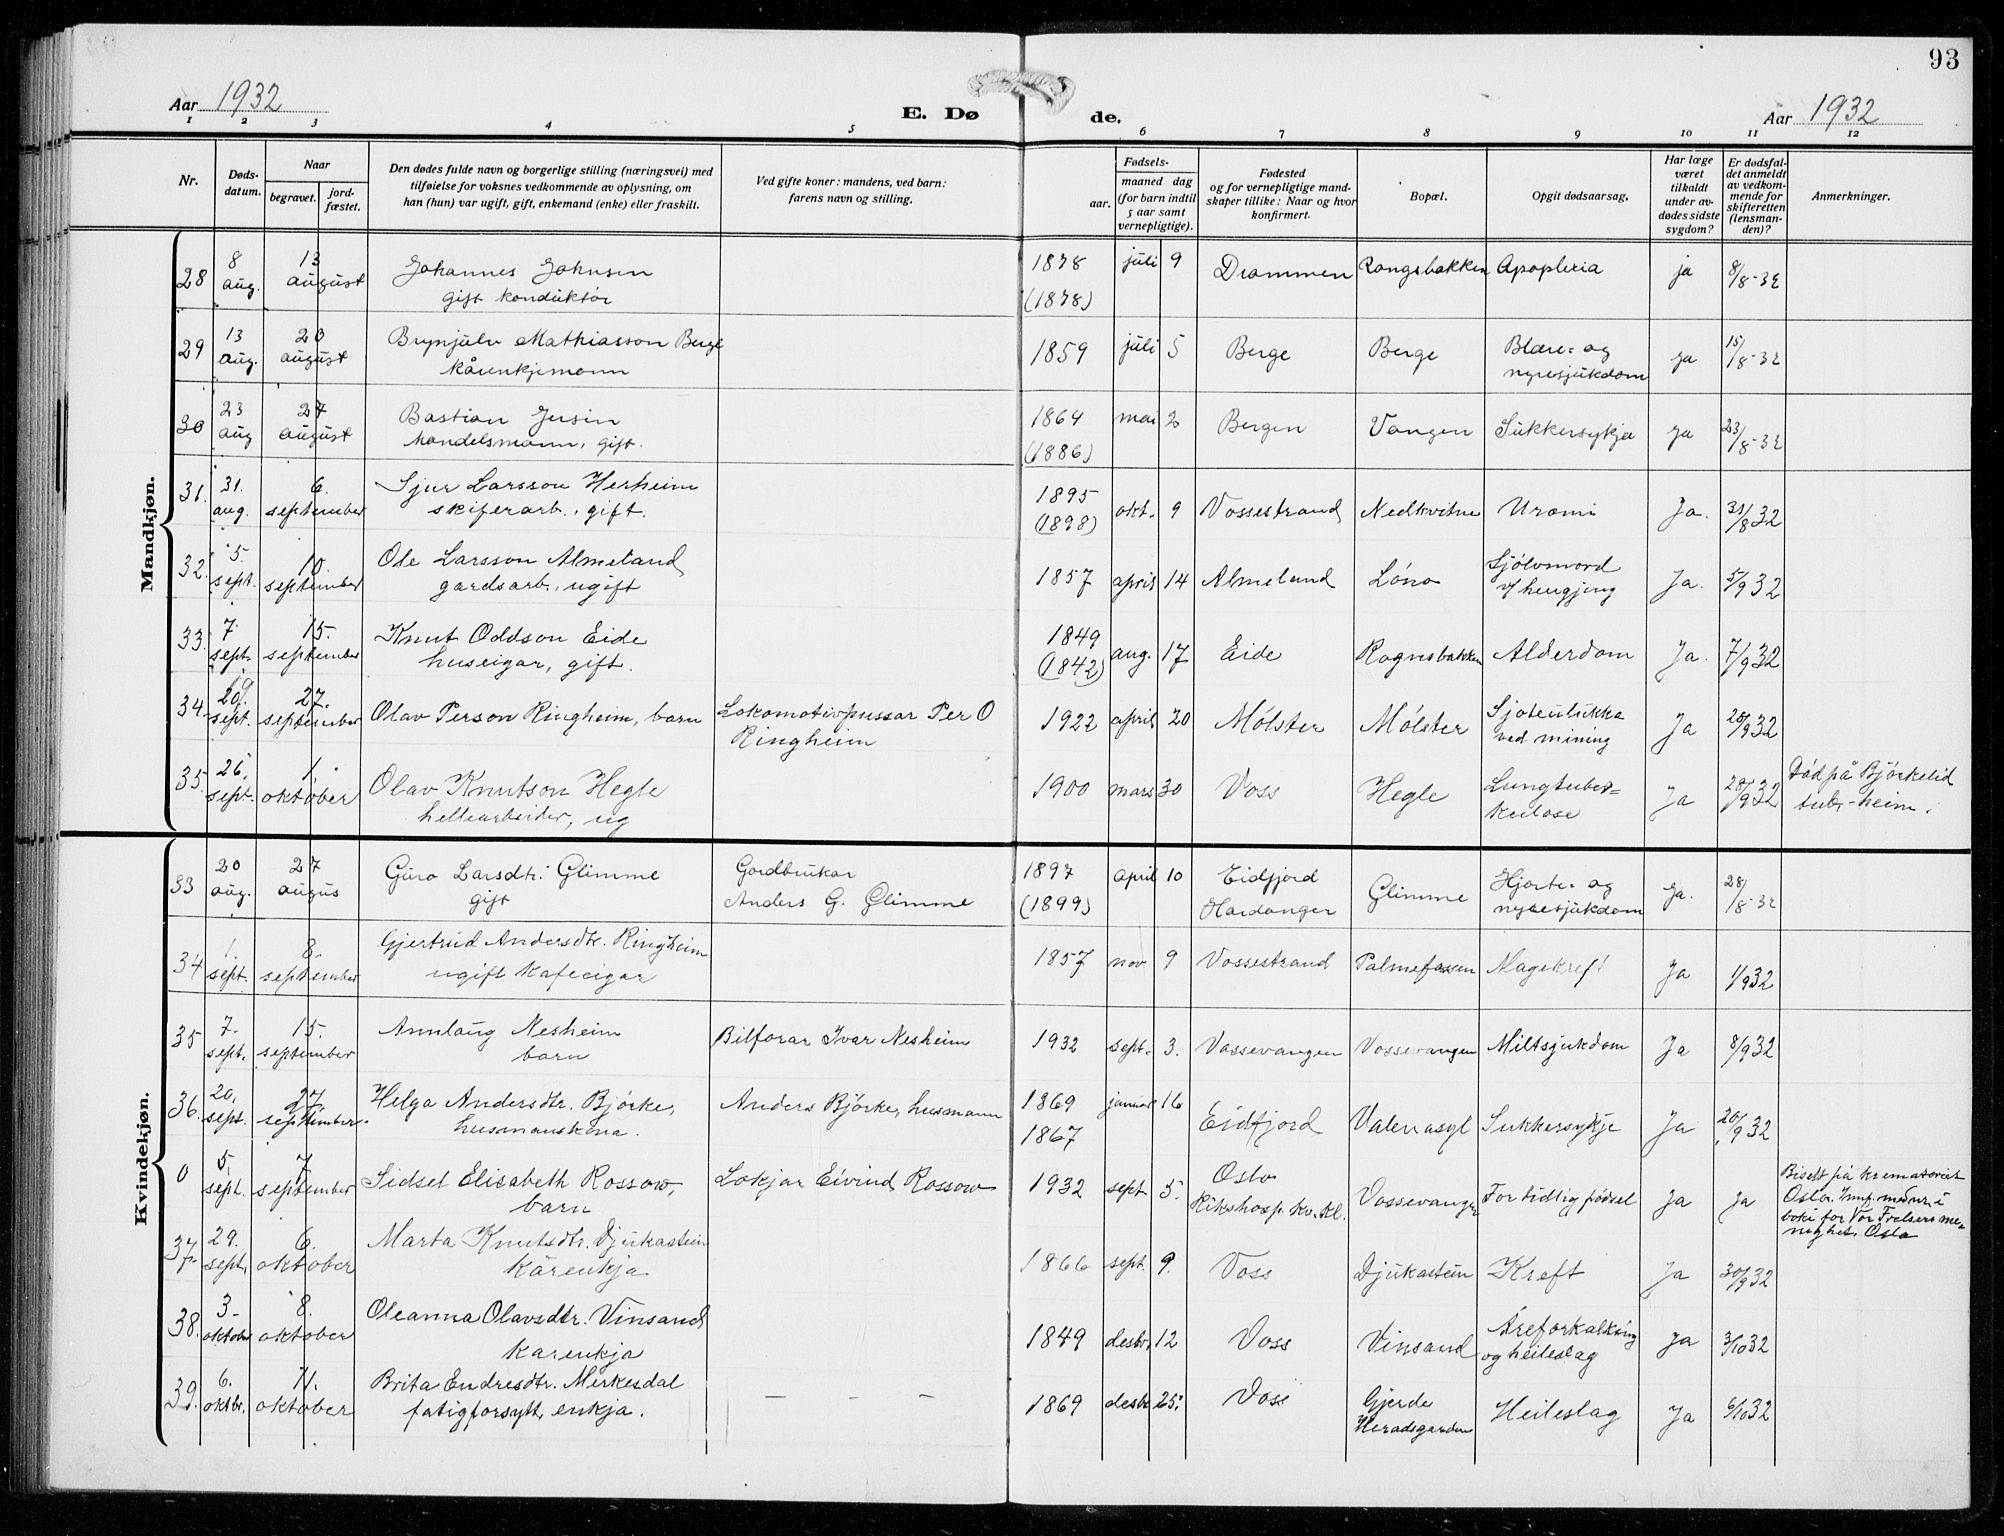 93
Aar 1932
E. Dø de.
Aar 1932
1 2 3 4 5 6 7 8 9 10 11 12
Nr.
Døds-
datum.
Naar
begravet.
jord-
fæstet.
Den dødes fulde navn og borgerlige stilling (næringsvei) med
tilføielse for voksnes vedkommende av oplysning, om
han (hun) var ugift, gift, enkemand (enke) eller fraskilt.
Ved gifte koner: mandens, ved barn:
farens navn og stilling.
Fødsels-
aar.
maaned dag
(for barn indtil
5 aar samt
vernepligtige).
Fødested
og for vernepligtige mand-
skaper tillike: Naar og hvor
konfirmert.
Bopæl.
Opgit dødsaarsag.
Har læge
været
tilkaldt
under av-
dødes sidste
sygdom?
Er dødsfal-
det anmeldt
av vedkom-
mende for
skifteretten
(lensman-
den)?
Anmerkninger.
Mandkjøn.
28 8 aug. 13 august Johannes Johnsen 1878 juli 9 Drammen Rongsbakken Apoplexia ja 8/8-32
gift konduktør (1878)
29 13 aug. 20 august Brynjulv Mathiasson Berge 1859 juli 5 Berge Berge Blære- og ja 15/8-32
kårenkjemann nyresjukdom
30 23 aug 27 august Bastian Jersin 1864 mai 2 Bergen Vangen Sukkersykja ja 23/8-32
Handelsmann, gift. (1886)
31. 31. aug. 6. september Sjur Larsson Herheim 1895 okt. 9 Vossestrand Nedkvitne Uromi Ja. 31/8 32
skiferarb., gift. (1898)
32. 5. sept. 10. september Ole Larsson Almeland 1857 april 14 Almeland Löno Sjölvmord Ja. 5/9 32
gardsarb., ugift v/ hengjing
33. 7. sept. 15. september Knut Oddson Eide 1849 aug. 17 Eide Rognsbakken Alderdom Ja. 7/9 32
huseigar, gift. (1842)
34. 20. 19 sept. 27. september Olav Person Ringheim, barn Lokomotivpussar Per O 1922 april 20 Mölster Mölster Sjotenlukka Ja 20/9 32
Ringheim ved mining
35. 26. sept. 1. oktober Olav Knutson Hegle 1900 mars 30 Voss Hegle Lungtuber= Ja 28/9 32 Död på Björkelid
hellearbeider, ug kulose tub,-heim.
Kvindekjøn.
33 20 aug. 27 augus Guro Larsdtr. Glimme Gardbrukar 1897 april 10 Eidfjord Glimme Hjerte- og Ja. 28/8-32
gift Anders G. Glimme (1899) Hardanger nyresjukdom
34 1. sept. 8. september Gjertrud Andersdtr. Ringheim 1857 nov 9 Vossestrand Palmefossen Magekreft Ja 1/9 32
ugift kafeeigar
35 7. sept. 15. september Annlaug Nesheim Bilförar Ivar Nesheim 1932 sept. 3. Vossevangen Vossevangen Miltsjukdom Ja 8/9 32
barn
36. 20. sept. 27. september Helga Andersdtr. Björke, Anders Björke, husmann 1869 januar 16 Eidfjord Valenasyl Sukkersykje Ja 20/9 32
husmanskona. 1867
0 5. sept. 7 september Sidsel Elisabeth Rossow, Lokjar Eivind Rossow 1932 sept 5. Oslo Vossevangen For tidlig födsel Ja Ja Bisett på krematoriet
barn Rikshosp. kv. kl. Oslo. Innf. med nr. i
boki for Vor Frelsers me=
nighet. Oslo
37 29. sept. 6. oktober Marta Knutsdtr. Djukastein 1866 sept. 9. Voss Djukastein Kreft Ja 30/9 32
kårenkja
38. 3. oktober 8. oktober Oleanna Olavsdtr. Vinsand 1849 desbr. 12 Voss Vinsand Åreforkalking Ja 3/10 32
kårenkja og heileslag
39. 6. oktbr. 11. oktober Brita Endresdtr. Merkesdal – – – 1869 desbr 25. Voss Gjerde Heileslag Ja 6/10 32
fatigforsytt, enkja. Heradsgarden